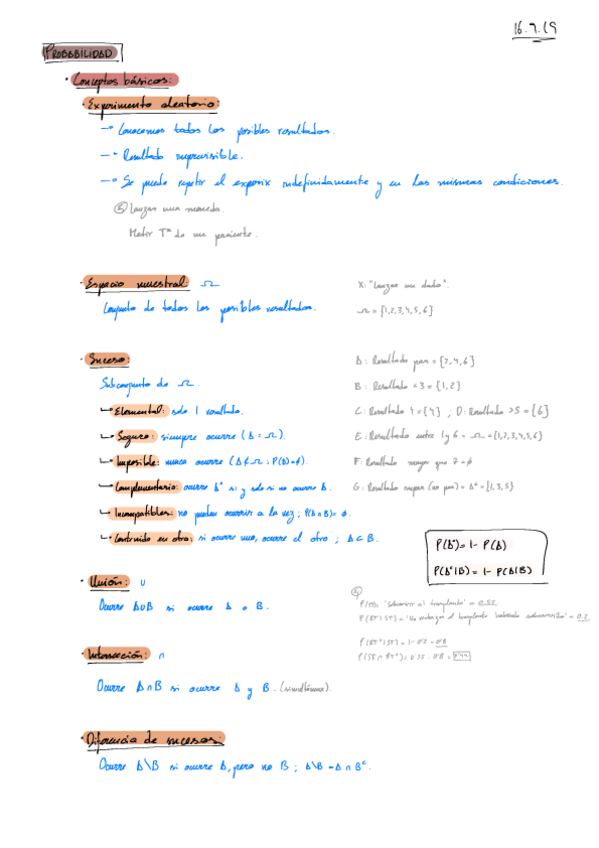 16.9.19
PROBABILIDAD
· Conceptos básicos:
· Experimento aleatorio:
→ Conocemos todos los posibles resultados.
→ Resultado imprevisible.
→ Se puede repetir el experim indefinidamente y en las mismas condiciones.
Lanzar una moneda.
Medir Tª de un paciente.
· Espacio muestral: Ω
X: "Lanzar un dado".
Conjunto de todos los posibles resultados.
Ω = {1,2,3,4,5,6}
· Suceso:
A: Resultado par = {2,4,6}
Subconjunto de Ω.
B: Resultado < 3 = {1,2}
Elemental: solo 1 resultado.
C: Resultado 4 = {4} ; D: Resultado >5 = {6}
Seguro: siempre ocurre (A = Ω).
E: Resultado entre 1 y 6 = Ω = {1,2,3,4,5,6}
Imposible: nunca ocurre (A ∉ Ω; P(A)=∅).
F: Resultado mayor que 7 = ∅
Complementario: ocurre Aᶜ si y solo si no ocurre A.
G: Resultado impar (no par) = Aᶜ = {1,3,5}
Incompatibles: no pueden ocurrir a la vez; P(A∩B) = ∅.
Contenido en otro: si ocurre uno, ocurre el otro ; A⊂B.
P(Aᶜ) = 1 - P(A)
P(Aᶜ|B) = 1 - P(A|B)
· Unión: ∪
Ocurre A∪B si ocurre A o B.
P(ST): "Sobrevivir al transplante" = 0.55
P(RT|ST) = "No rechazar el transplante habiendo sobrevivido" = 0.2
P(RTᶜ|ST) = 1 - 0'2 = 0'8
· Intersección: ∩
P(ST ∩ RTᶜ) = 0'55 · 0'8 = 0'44
Ocurre A∩B si ocurre A y B. (simultánea).
· Diferencia de sucesos:
Ocurre A\B si ocurre A, pero no B ; A\B = A∩Bᶜ.